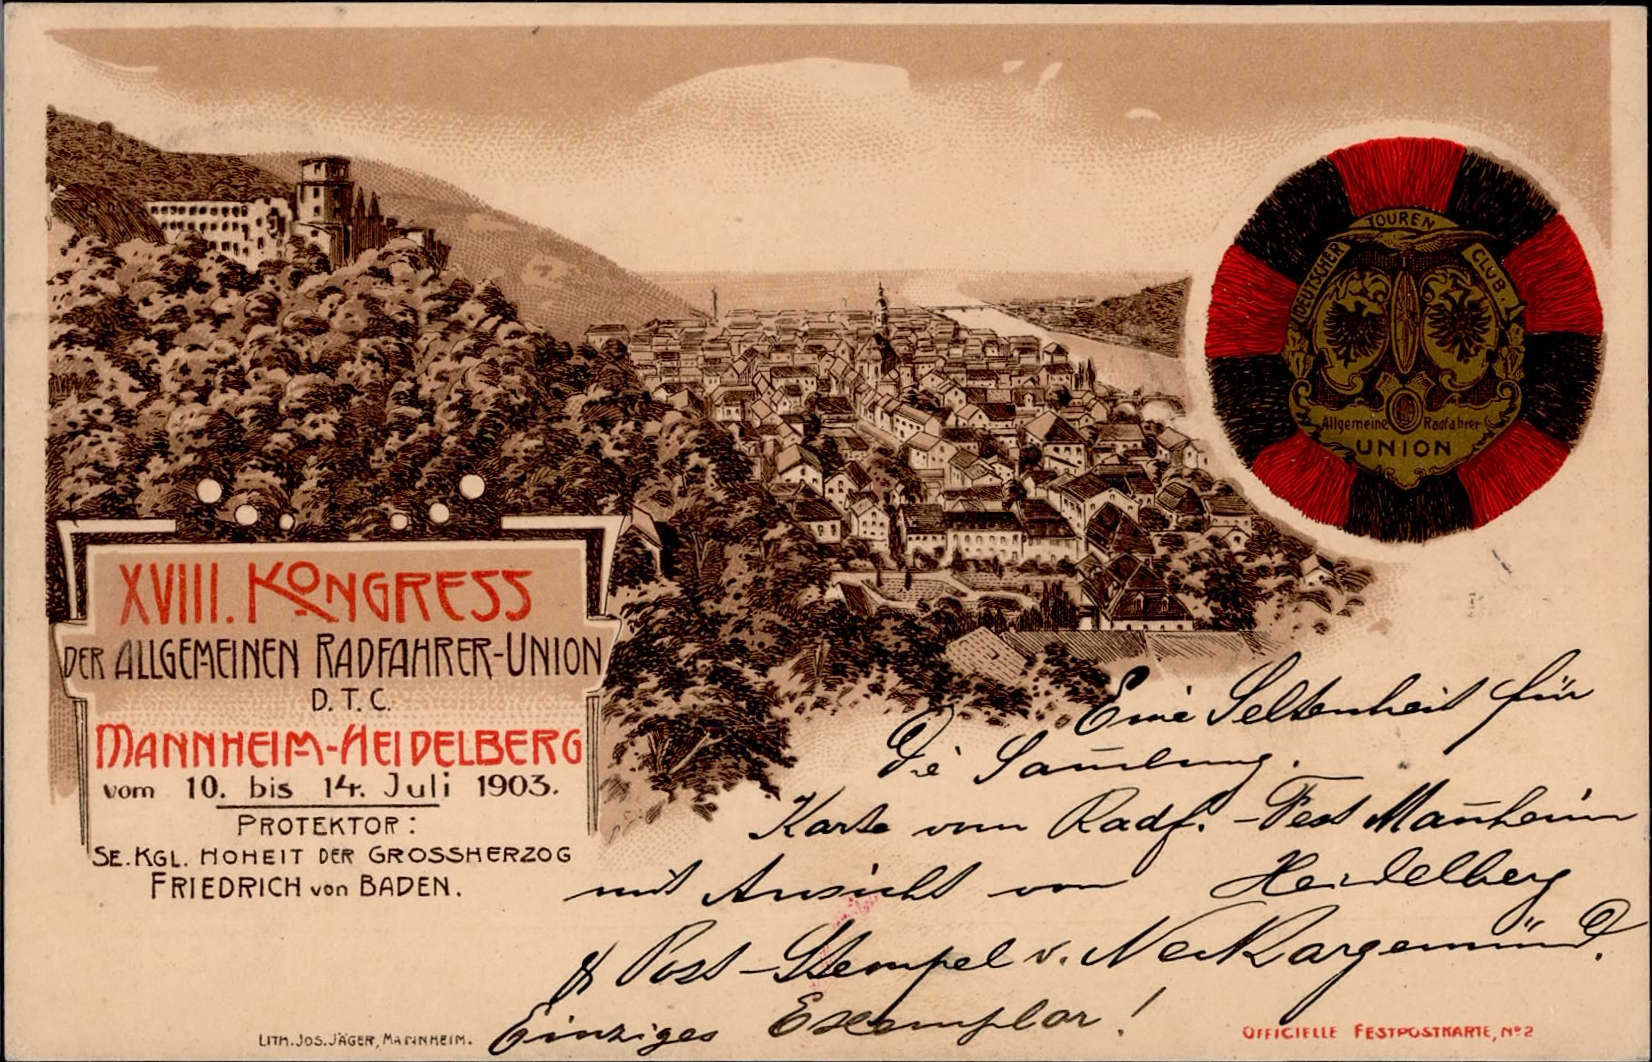 DEUTSCHER TOUREN CLUB
Allgemeine Radfahrer
UNION
XVIII. KONGRESS
DER ALLGEMEINEN RADFAHRER-UNION
D. T. C.
MANNHEIM-HEIDELBERG
vom 10. bis 14. Juli 1903.
PROTEKTOR:
SE. KGL. HOHEIT DER GROSSHERZOG
FRIEDRICH von BADEN.
Eine Seltenheit für
Die Sam̄lung.
Karte vom Radf. - Fest Man̄heim
mit Ansicht von Heidelberg
& Post-Stempel v. Neckargemünd.
Einziges Exemplar!
LITH. JOS. JÄGER, MANNHEIM.
OFFICIELLE FESTPOSTKARTE, No 2